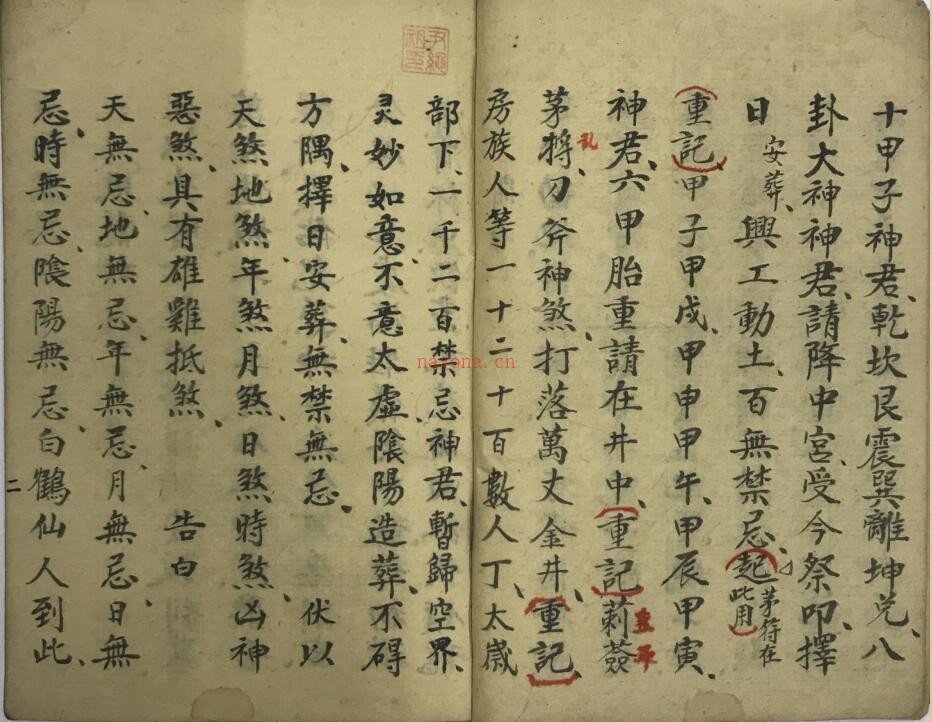 十甲子神君、乾坎艮震巽離坤兌、八
卦大神神君、請降中宮、受今祭叩、擇
日安葬、興工動土、百無禁忌、起茅符在此用
重記甲子甲戌、甲申甲午、甲辰甲寅、
神君、六甲胎重請在井中、重記莿簽
茅將乱刀斧神煞、打落萬丈金井、重記
房族人等一十二十百數人丁、太歲
部下、一千二百禁忌神君、暫歸空界、
灵妙如意不意太虛、陰陽造葬、不碍
方隅、擇日安葬、無禁無忌、伏以
天煞、地煞、年煞、月煞、日煞、時煞、凶神
惡煞、具有雄雞抵煞、告白
天無忌、地無忌、年無忌、月無忌、日無
忌、時無忌、陰陽無忌白鶴仙人到此、
二
nayona.cn